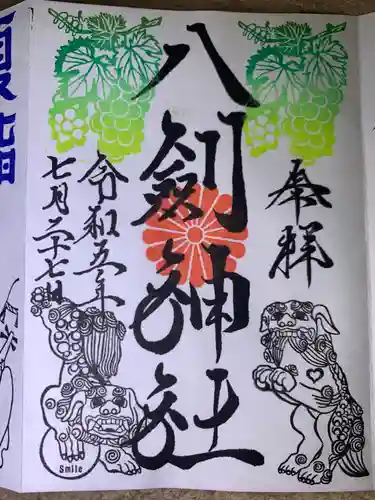 奉拝
八剱神社
令和五年
七月二十七日
Smile